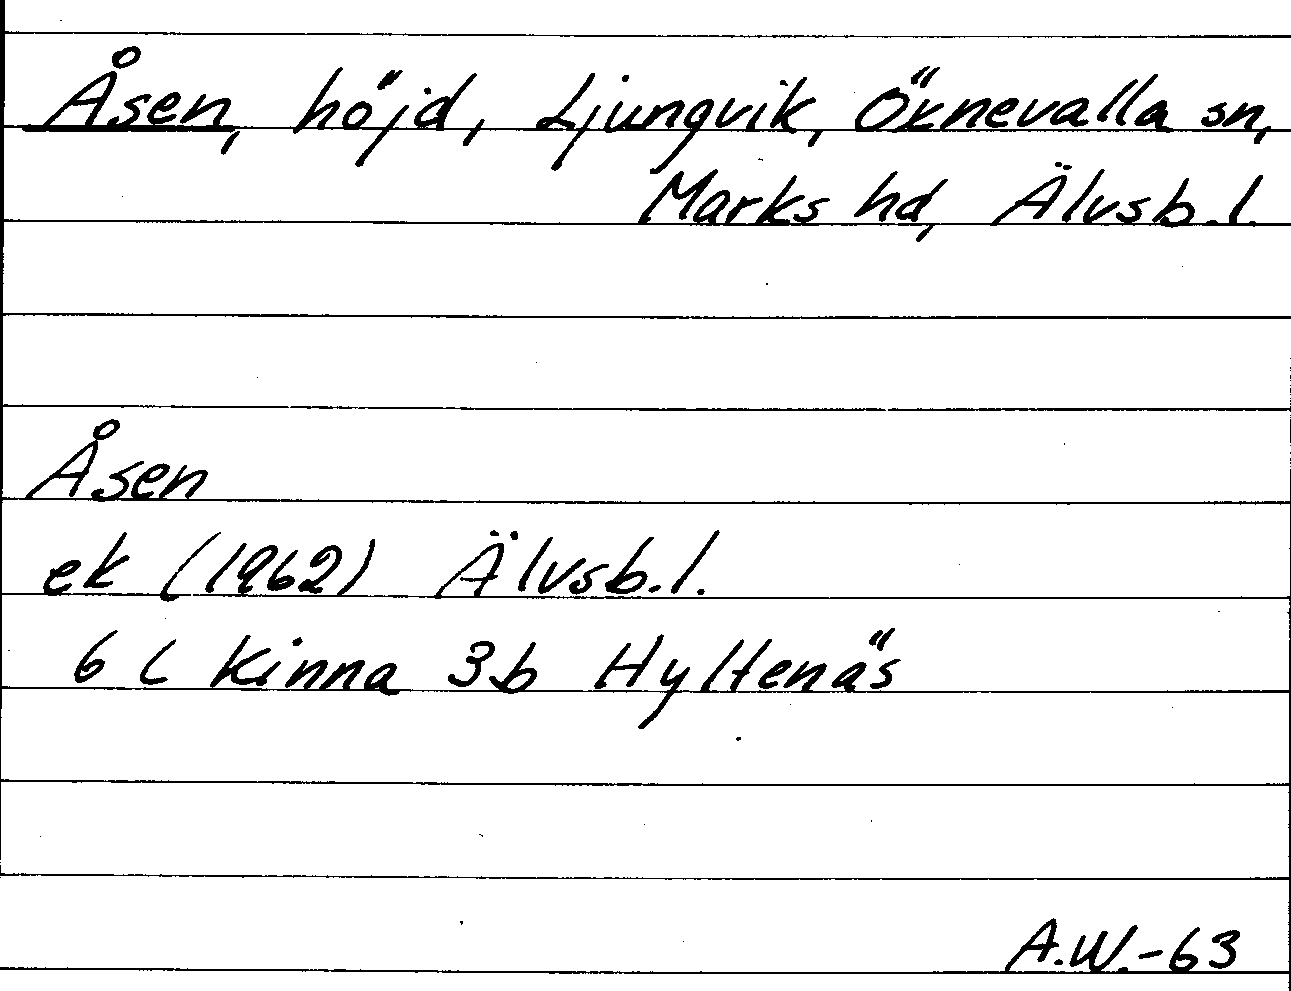 Åsen, höjd, Ljungvik, Öxnevalla sn,
Marks hd, Älvsb.l.
Åsen
ek (1962) Älvsb.l.
6 C Kinna 3b Hyltenäs
A.W.-63